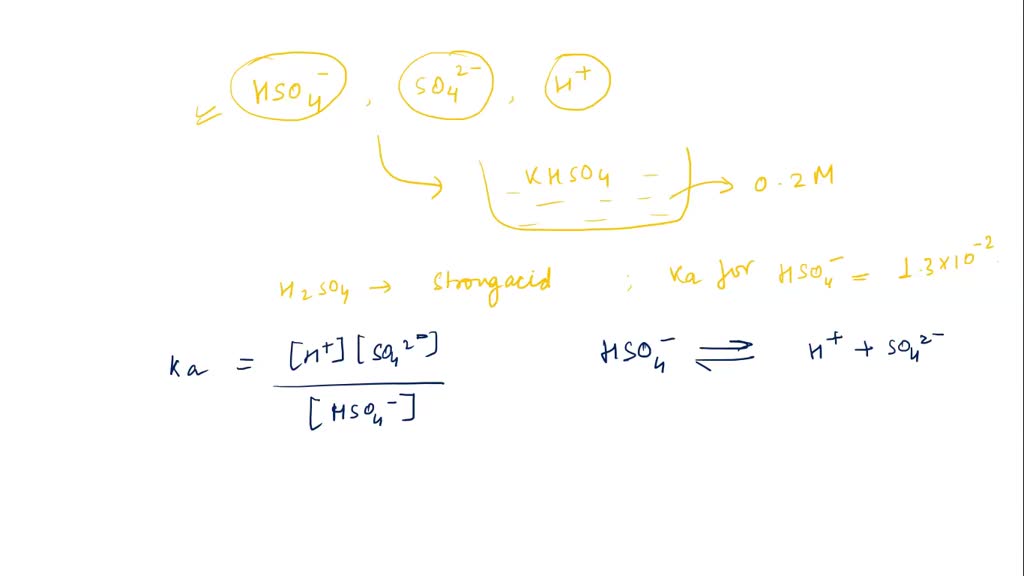 HSO₄⁻ , SO₄²⁻ , H⁺
KHSO₄ → 0.2M
H₂SO₄ → strong acid ; Ka for HSO₄⁻ = 1.3×10⁻²
Ka = [H⁺][SO₄²⁻] / [HSO₄⁻]
HSO₄⁻ ⇌ H⁺ + SO₄²⁻